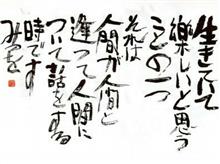 生きていて
楽しいと思う
ことの一つ
それは
人間が人間と
逢って人間に
ついて話をする
時です
みつを